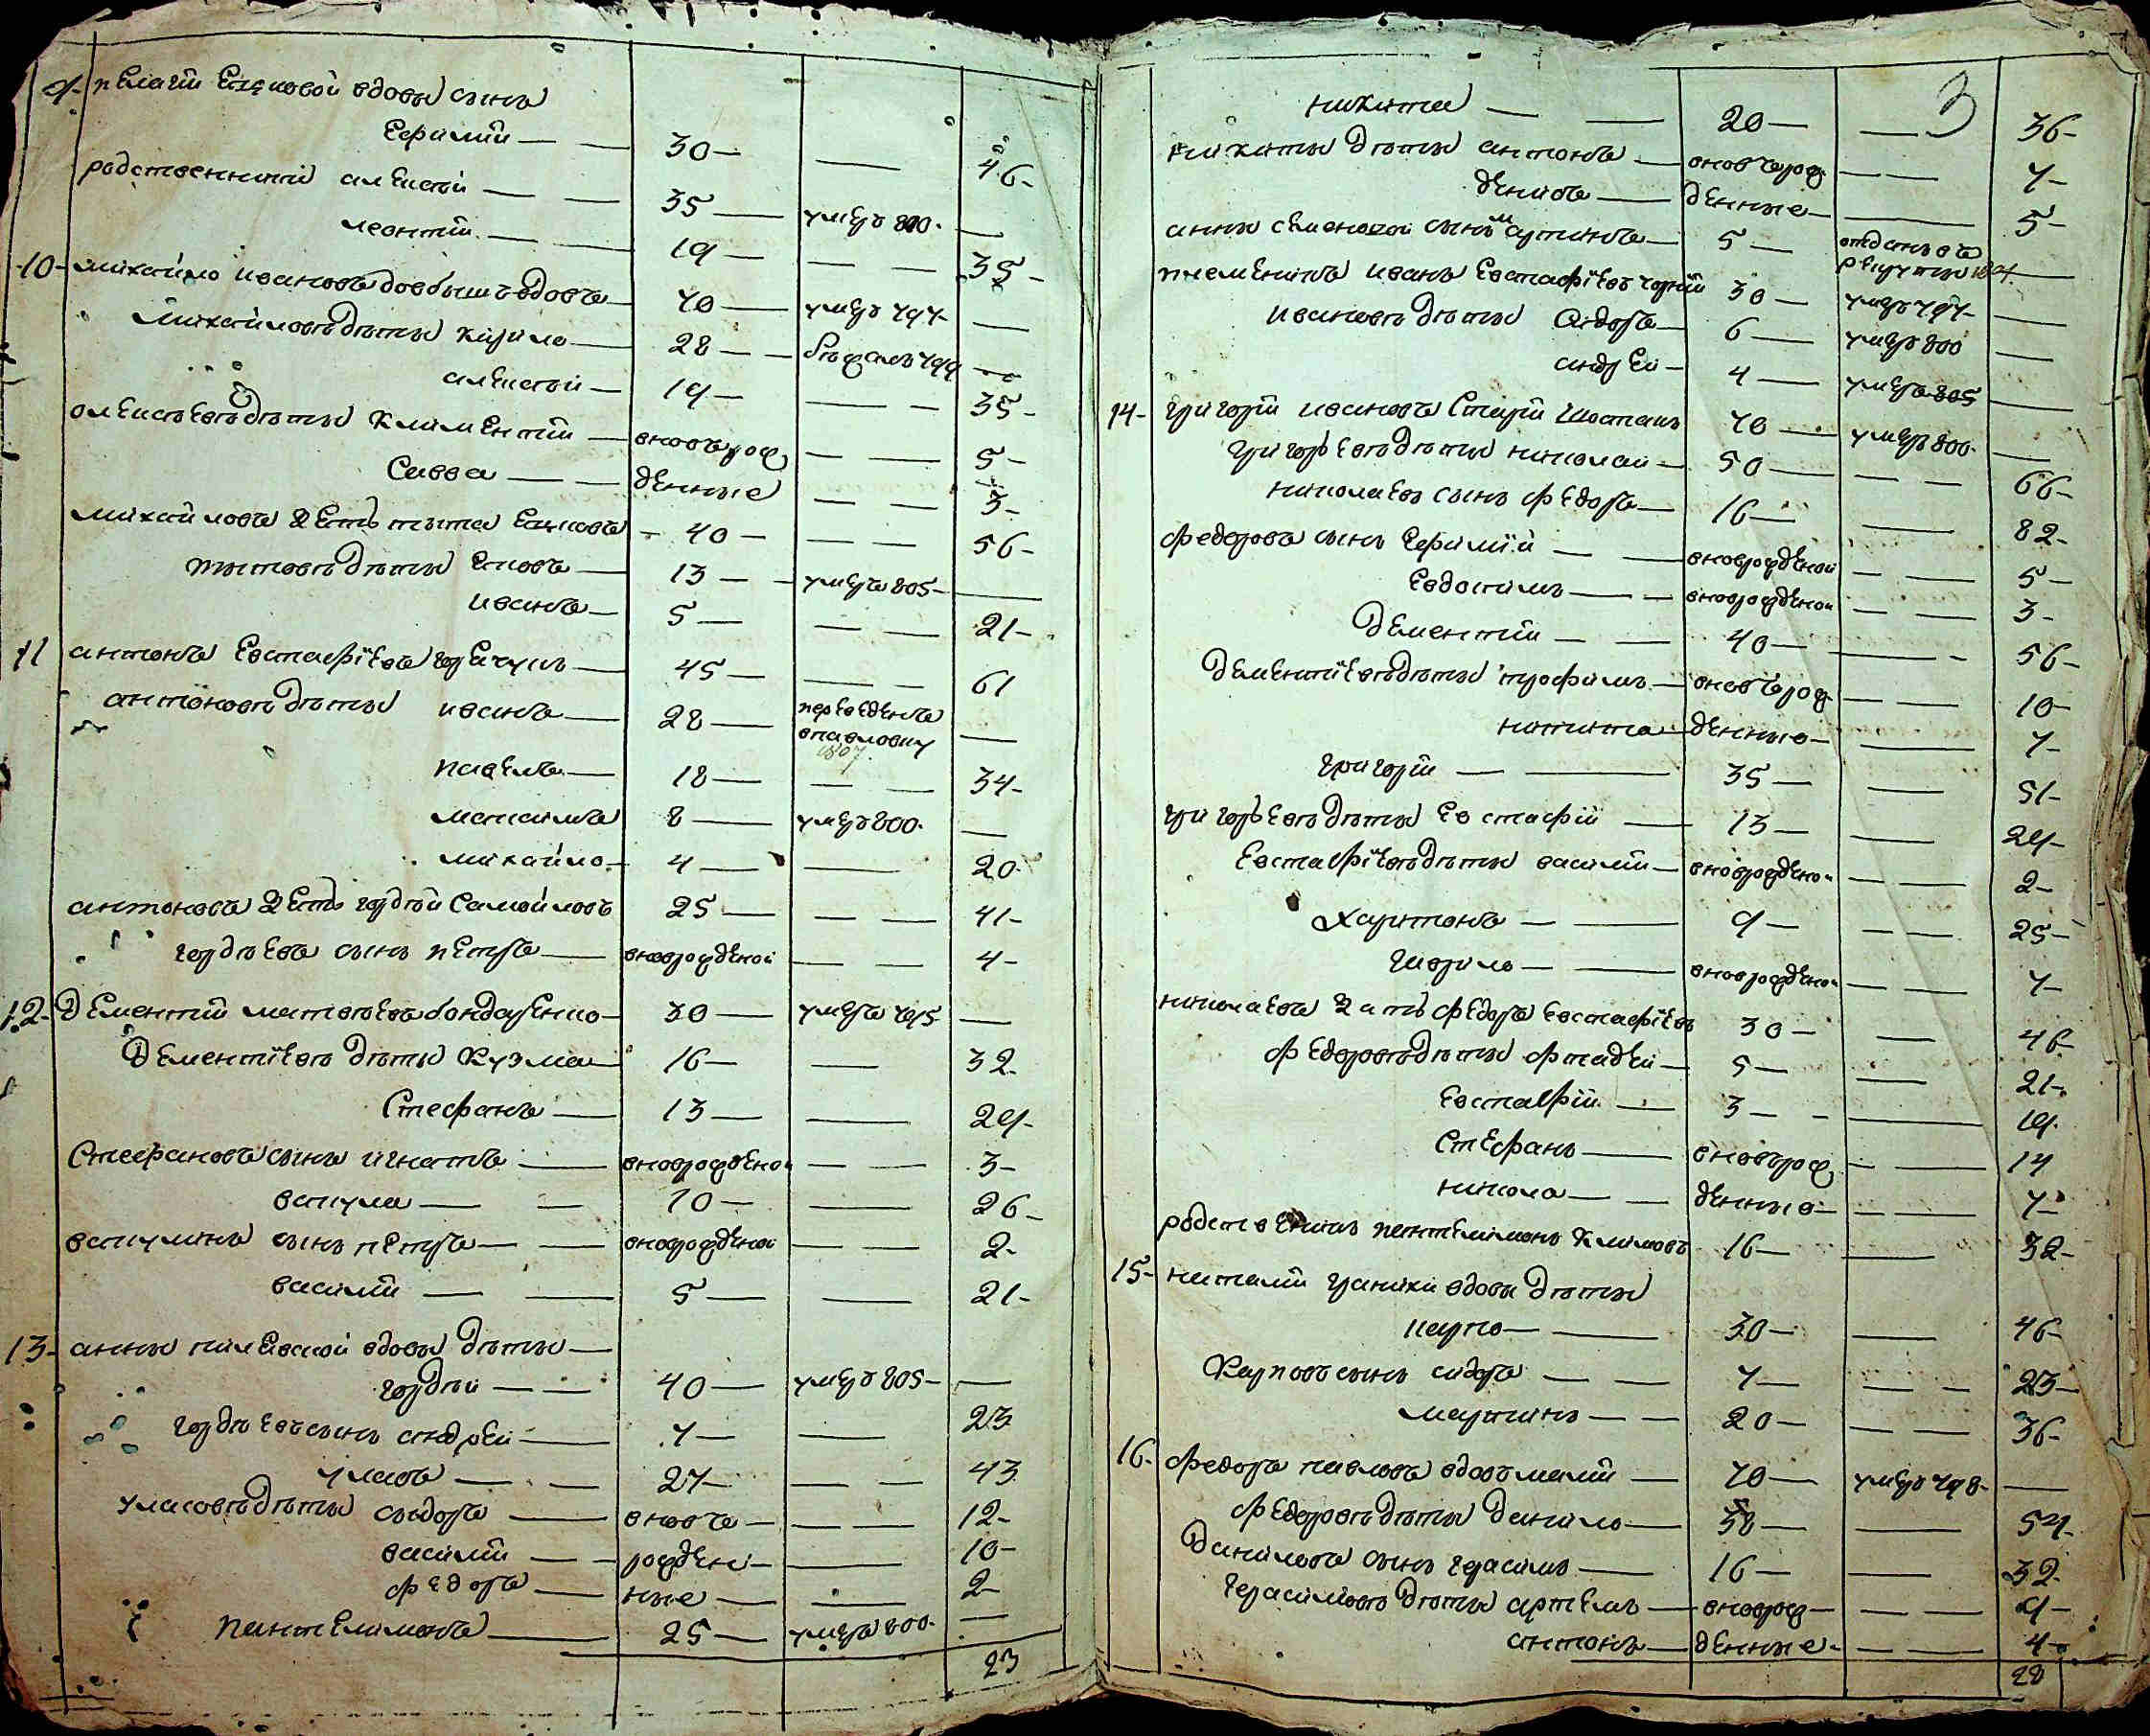 9- пелагии Ецковой вдовы сынъ
Ефимий — 30 — — 46-
родственники алексей — 35 — умеръ 800. —
леонтий — 19 — — 35-
10- михайло ивановъ довбышъ вдовъ — 70 — умеръ 797 —
михайловы дѣти кирило — 28 — бѣжалъ 799 —
алексей — 19 — — 35-
алексѣевы дѣти климентий — вновь рож — 5-
Савва — денные — 3-
михайловъ зять тытъ Ецковъ — 40 — — 56-
тытовы дѣти Яковъ — 13 — умеръ 805 —
иванъ — 5 — — 21-
11 антонъ Евстафїевъ — 45 — — 61
антоновы дѣти иванъ — 28 — переведенъ —
в павловку
1807
павелъ — 18 — — 34-
максимъ 8 — умеръ 800. —
михайло — 4 — — 20
антоновъ зять гордѣй Самойловъ 25 — — 41-
гордѣевъ сынъ петръ — вноврожденой — 4-
12- Дементий матвѣевъ бондаренко — 30 — умеръ 795 —
Дементїевы дѣти Кузма — 16 — — 32-
Стефанъ — 13 — — 29-
Стефановъ сынъ игнатъ — вноврождено — 3-
вакула — 10 — — 26-
вакулинъ сынъ петръ — вноврожденой — 2-
василий — 5 — — 21-
13- анны вдовы дѣти —
гордѣй — 40 — умеръ 805 — —
гордѣевъ сынъ андрей — 7 — — 23
уласъ — 27 — — 43
уласовы дѣти сыдоръ — вновъ — 12-
василий — рожден — 10-
федоръ — ные — 2-
пантелимонъ — 25 — умеръ 800. —
23
3
никита — 20 — — 36-
никиты дѣти антонъ — вновъ рож — 7-
денисъ — денные — 5-
анны семеновой сынъ мартинъ — 5 — отданъ въ
рекруты 1804 —
племеникъ иванъ Евстафїевъ 30 — умеръ 797 —
ивановы дѣти Сидоръ — 6 — умеръ 800 —
андрей — 4 — умеръ 805 —
14- григорий ивановъ Старий Шостакъ 70 — умеръ 800. —
григорьевы дѣти николай — 50 — — 66-
николаевъ сынъ федоръ — 16 — — 32-
федоровъ сынъ Ефимий — вноврожденой — 5-
Евдокимъ — вноврожденой — 3-
Дементий — 40 — — 56-
Дементїевы дѣти трофимъ — вновъ рож — 10-
никита — денные — 7-
григорий — 35 — — 51-
григорьевы дѣти Евстафий — 13 — — 29-
Евстафїевы дѣти василий — вноврождено — 2-
Харитонъ — 9 — — 25-
гаврило — вноврождено — 7-
николаевъ зять федоръ Евстафїев 30 — — 46-
федоровы дѣти фтадей — 5 — — 21-
Евстафий — 3 — — 19
Стефанъ — вновъ рож — 14
никола — денные — 7-
родственикъ пантелимонъ Климовъ 16 — — 32-
15- наталии вдовы дѣти
карпо — 30 — — 46-
Карповъ сынъ сидоръ — 7 — — 23-
мартинъ — 20 — — 36-
16- федоръ павловъ вдовъ малий — 70 — умеръ 798 — —
федоровы дѣти данило — 38 — — 54-
Даниловъ сынъ герасимъ — 16 — — 32-
герасимовы дѣти артемъ — вноврож — 9-
антонъ — денные — 4-
28